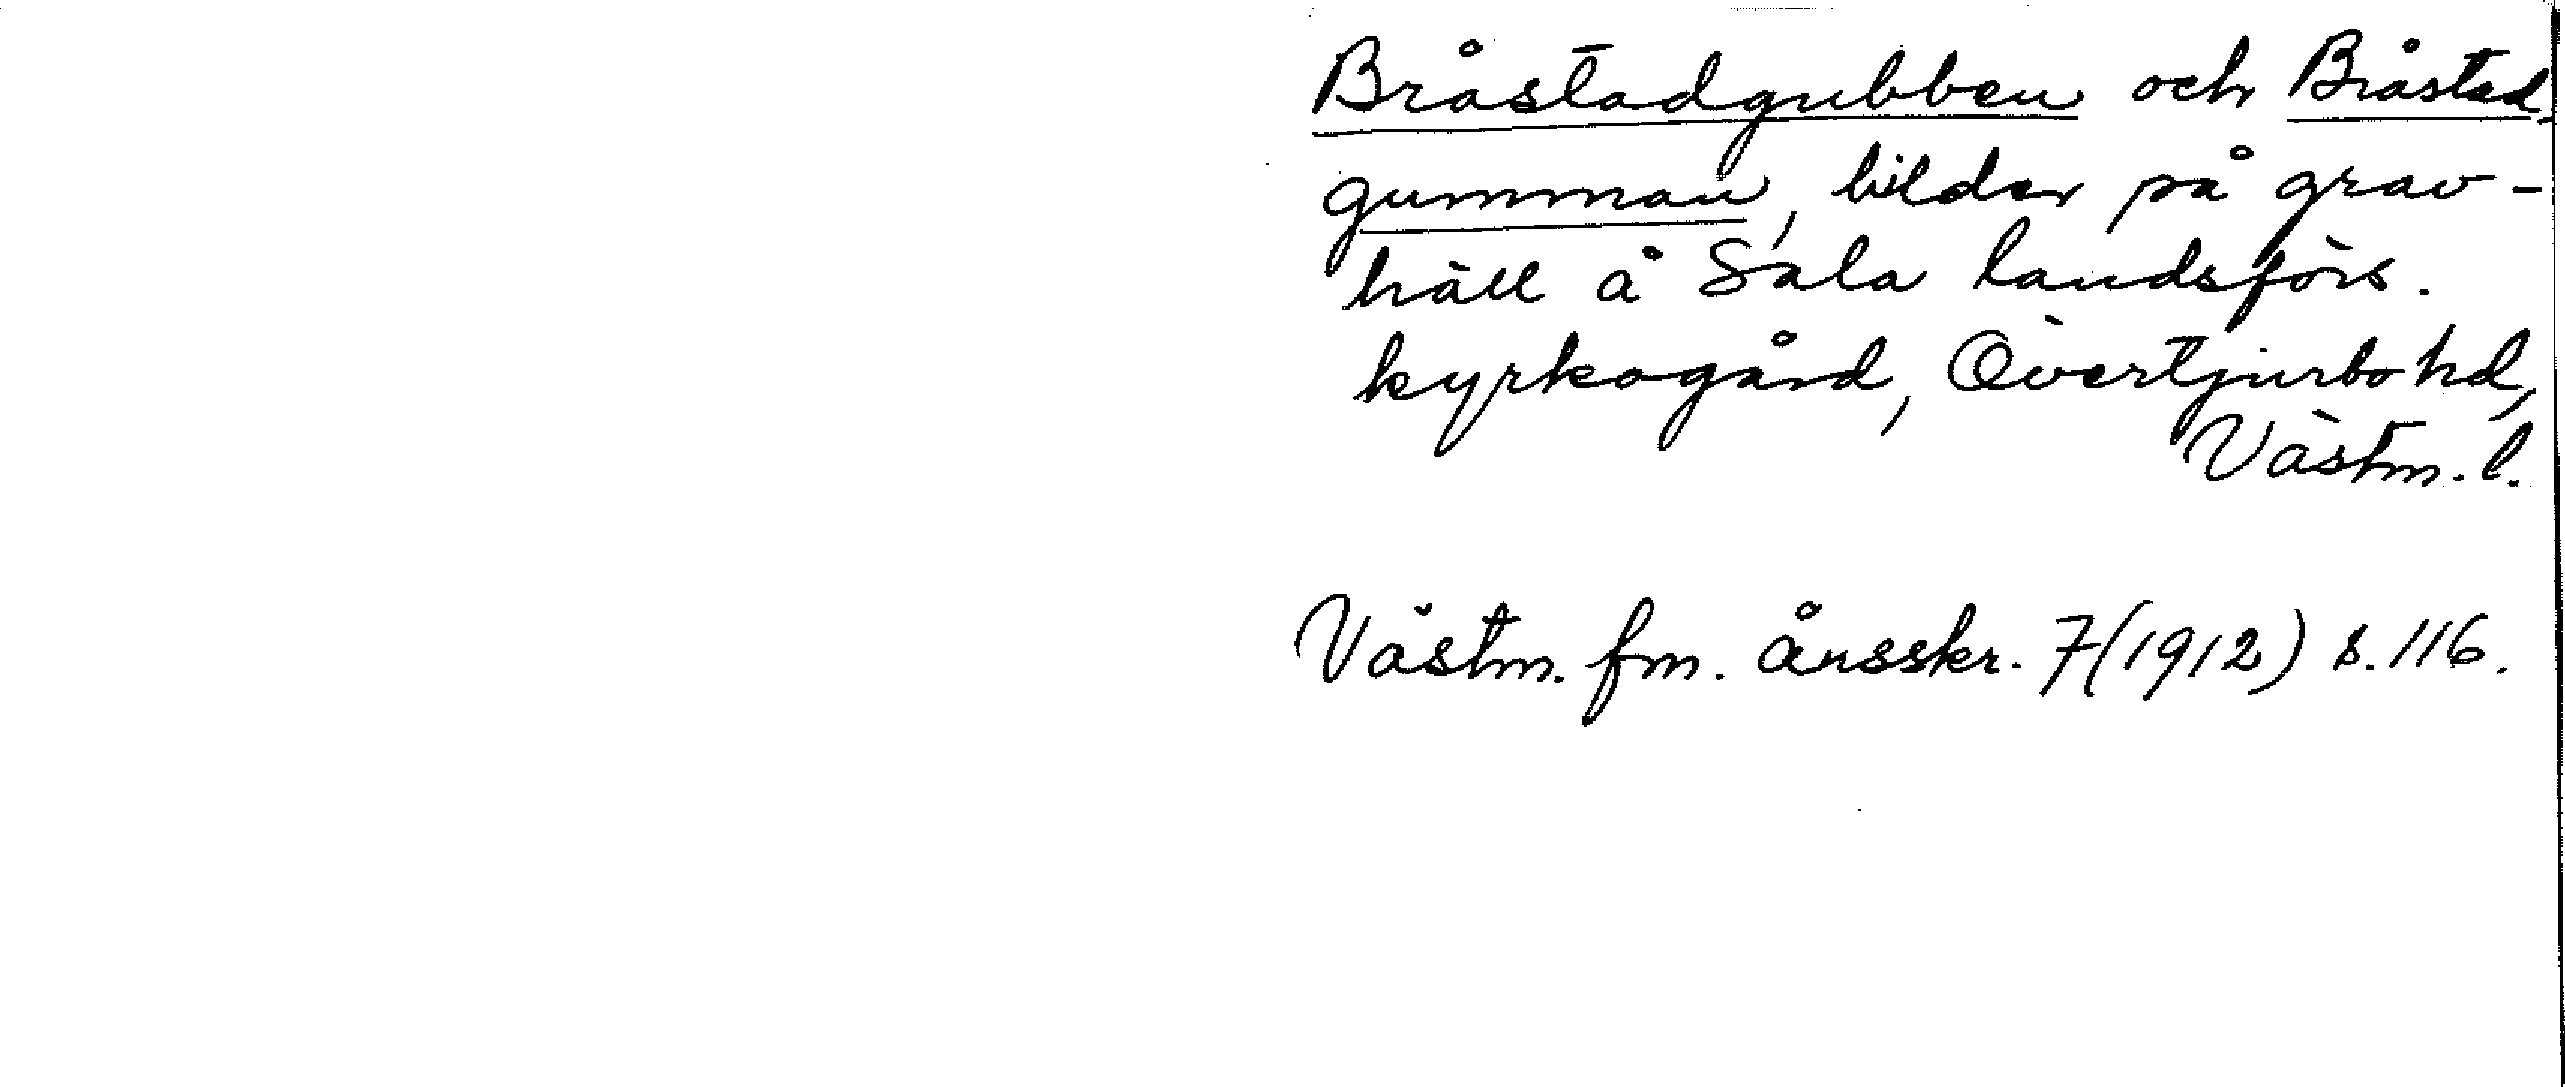 Bråstadgubben och Bråstad-
gumman, bilder på grav-
häll å Sala landsförs.
kyrkogård, Övertjurbo hd,
Västm. l.
Västm. fm. årsskr. 7(1912) s. 116.